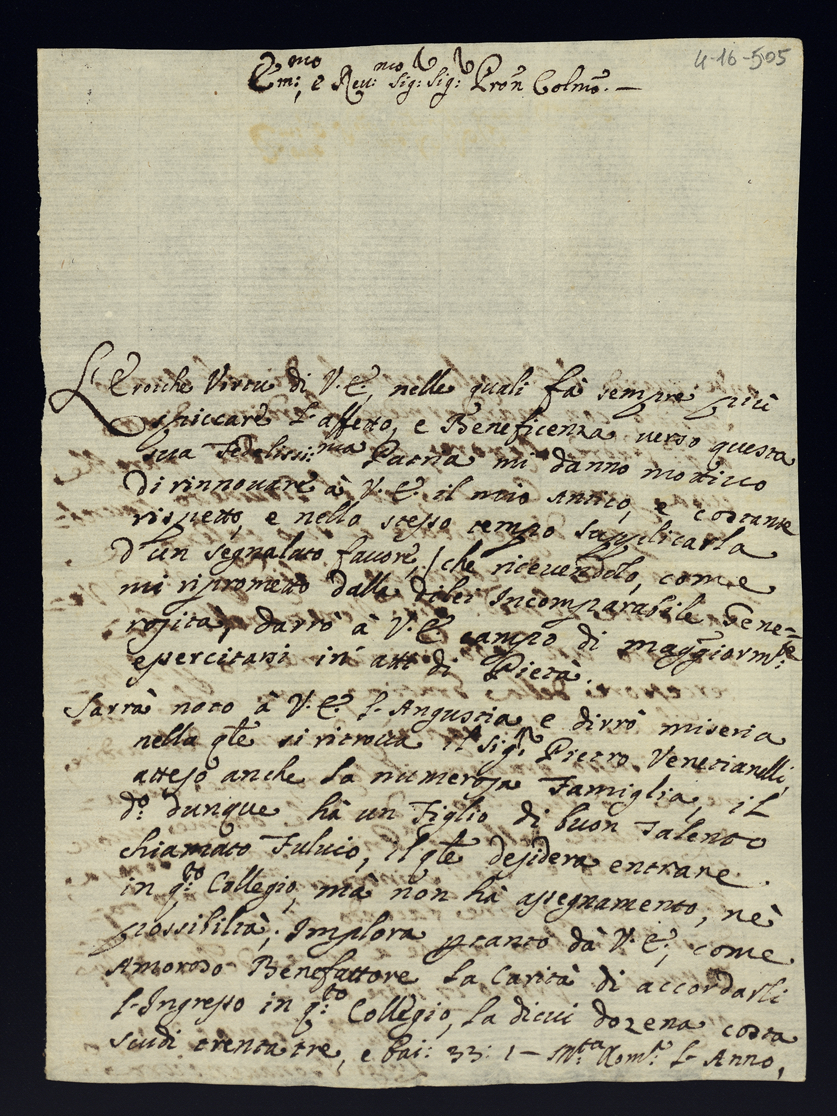 4-16-505
Em:mo, e Reu:mo Sig: Sig: Pron Colmo. —
L'Eroiche Virtù di V.E., nelle quali fà sempre più
spiccare l'affetto, e Beneficenza verso questa
sua Fedeliss:ma Patria mi danno motivo
di rinnovare à V.E. il mio Antico, e costante
rispetto, e nello stesso tempo supplicarla
d'un segnalato favore / che ricevendolo, come
mi riprometto dalla di lei Incomparabile Gene=
rosità, darrò à V.E. campo di maggiorm:te
esercitarsi in atti di Pietà.
Sarrà noto à V.E. l'Angustia, e dirrò miseria
nella qle si ritrova il Sig:r Pietro Venezianelli,
atteso anche la numerosa Famiglia, il
do: dunque hà un Figlio di buon Talento
chiamato Fulvio, il qle desidera entrare
in q:to Collegio, mà non hà assegnamento, nè
possibiltà; Implora ptanto dà V.E., come
Amoroso Benefattore la Carità di accordarli
l'Ingresso in q:to Collegio, la dicui dozena costa
scudi trenta tre, e bai: 33: 1 — M:ta Rom:a l'Anno,